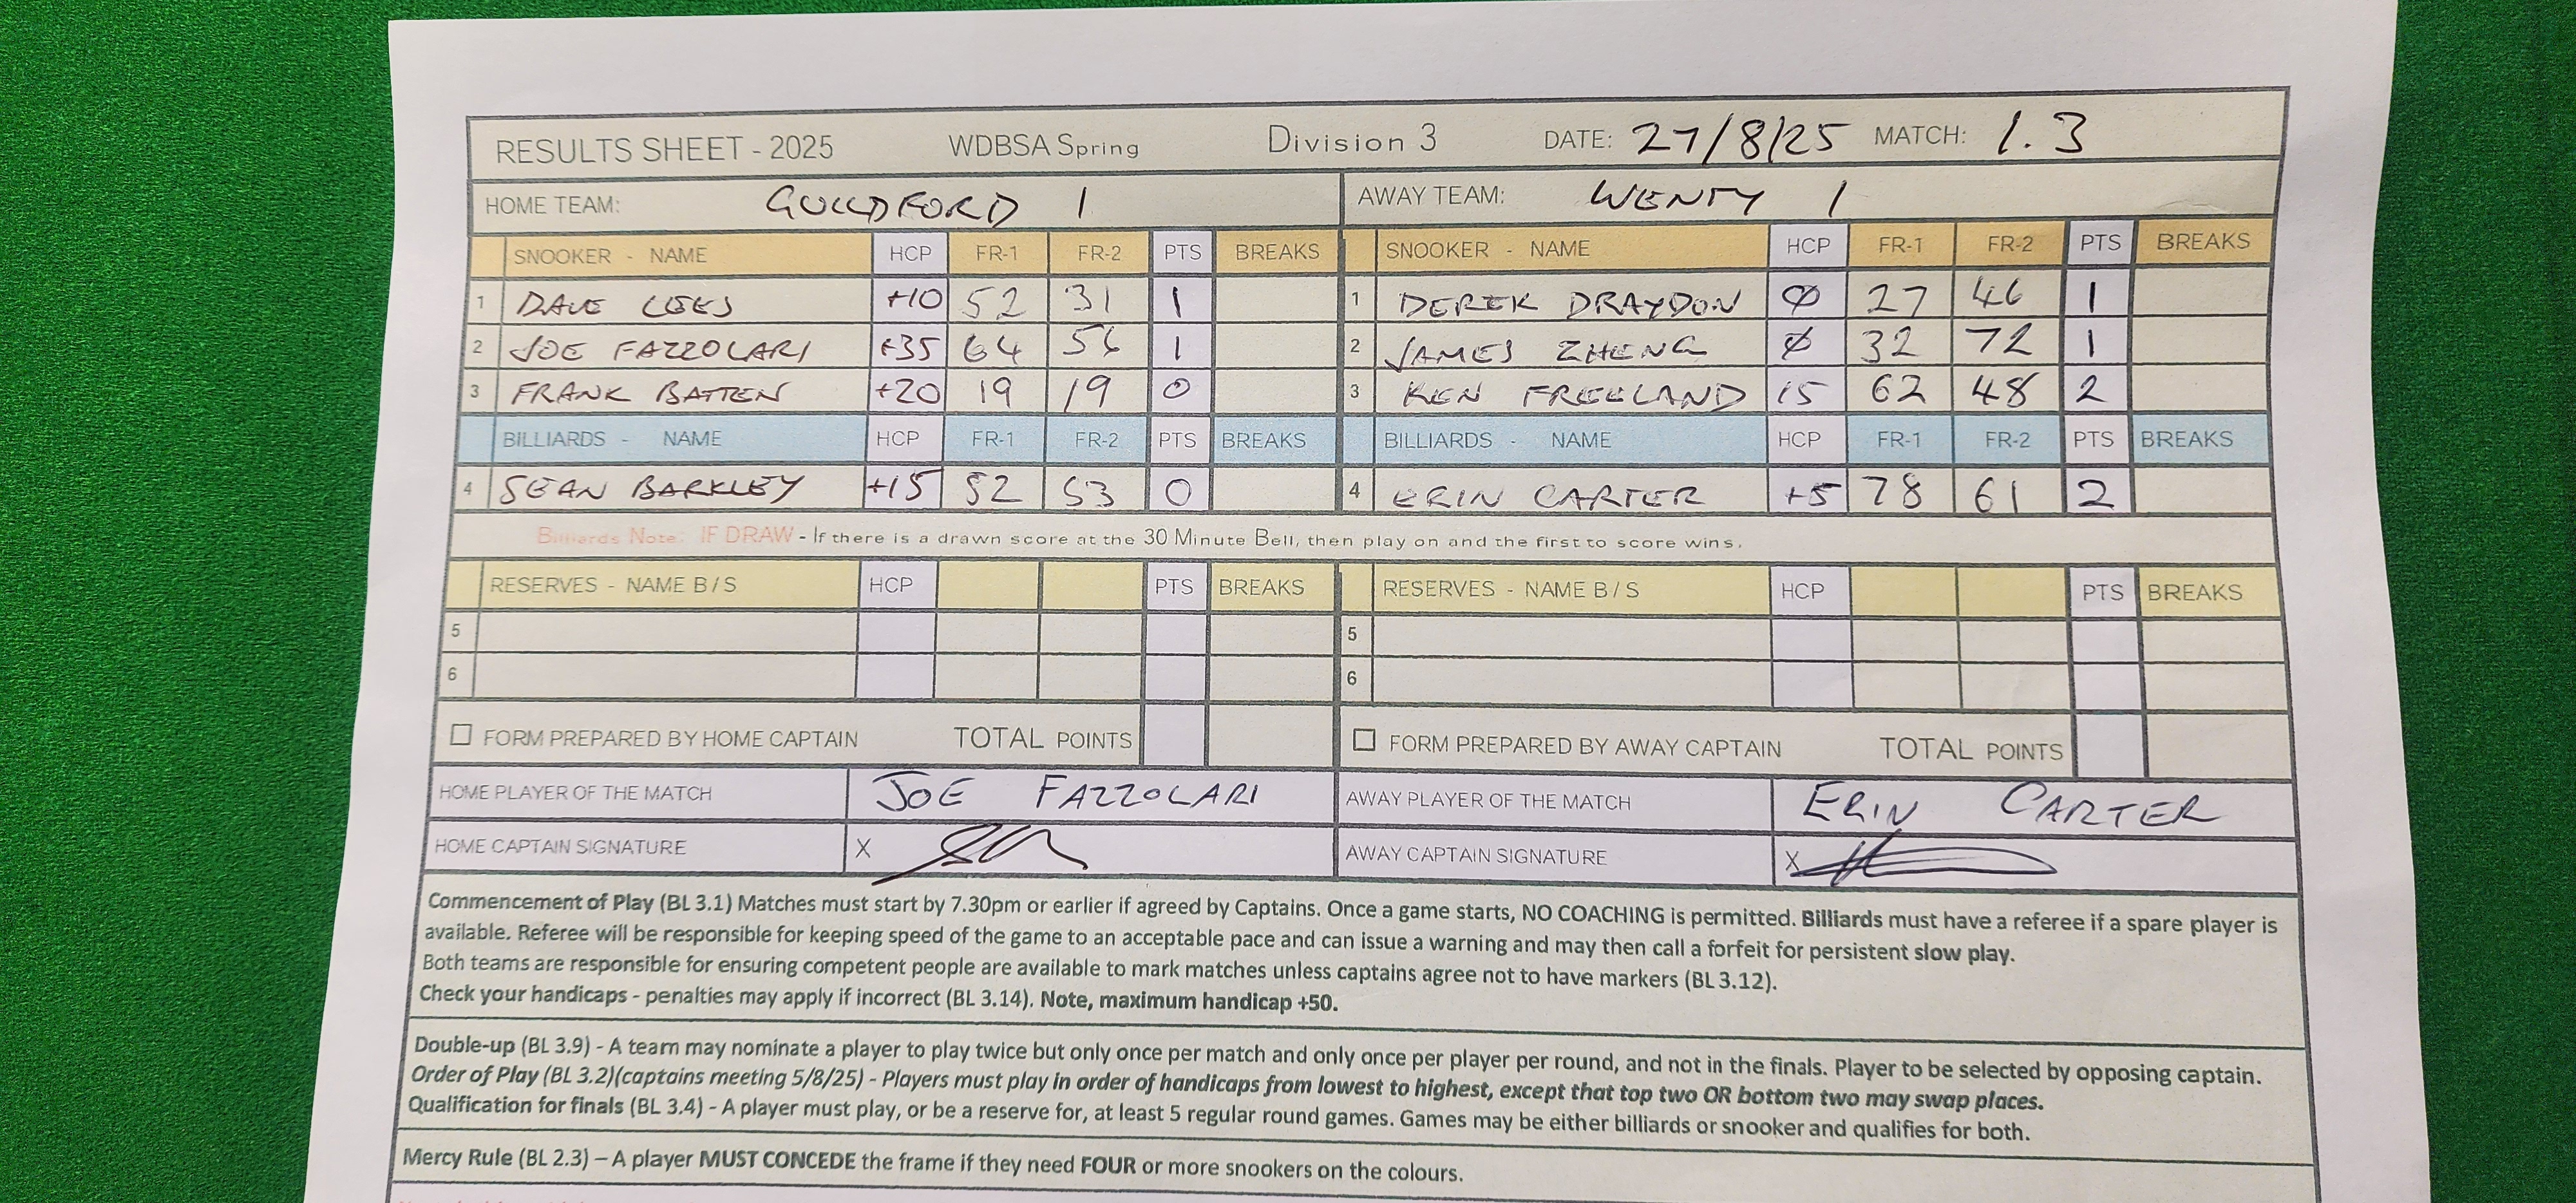 RESULTS SHEET - 2025 WDBSA Spring Division 3 DATE: 27/8/25 MATCH: 1.3
HOME TEAM: GUILDFORD 1 AWAY TEAM: WENTY 1
SNOOKER - NAME HCP FR-1 FR-2 PTS BREAKS SNOOKER - NAME HCP FR-1 FR-2 PTS BREAKS
1 DAVE LEES +10 52 31 1 1 DEREK DRAYDON 0 27 46 1
2 JOE FAZZOLARI +35 64 56 1 2 JAMES ZHENG 0 32 72 1
3 FRANK BATTEN +20 19 19 0 3 KEN FREELAND 15 62 48 2
BILLIARDS - NAME HCP FR-1 FR-2 PTS BREAKS BILLIARDS - NAME HCP FR-1 FR-2 PTS BREAKS
4 SEAN BARKLEY +15 52 53 0 4 ERIN CARTER +5 78 61 2
Billiards Note: IF DRAW - If there is a drawn score at the 30 Minute Bell, then play on and the first to score wins.
RESERVES - NAME B / S HCP PTS BREAKS RESERVES - NAME B / S HCP PTS BREAKS
5 5
6 6
FORM PREPARED BY HOME CAPTAIN TOTAL POINTS FORM PREPARED BY AWAY CAPTAIN TOTAL POINTS
HOME PLAYER OF THE MATCH JOE FAZZOLARI AWAY PLAYER OF THE MATCH ERIN CARTER
HOME CAPTAIN SIGNATURE X AWAY CAPTAIN SIGNATURE X
Commencement of Play (BL 3.1) Matches must start by 7.30pm or earlier if agreed by Captains. Once a game starts, NO COACHING is permitted. Billiards must have a referee if a spare player is
available. Referee will be responsible for keeping speed of the game to an acceptable pace and can issue a warning and may then call a forfeit for persistent slow play.
Both teams are responsible for ensuring competent people are available to mark matches unless captains agree not to have markers (BL 3.12).
Check your handicaps - penalties may apply if incorrect (BL 3.14). Note, maximum handicap +50.
Double-up (BL 3.9) - A team may nominate a player to play twice but only once per match and only once per player per round, and not in the finals. Player to be selected by opposing captain.
Order of Play (BL 3.2)(captains meeting 5/8/25) - Players must play in order of handicaps from lowest to highest, except that top two OR bottom two may swap places.
Qualification for finals (BL 3.4) - A player must play, or be a reserve for, at least 5 regular round games. Games may be either billiards or snooker and qualifies for both.
Mercy Rule (BL 2.3) – A player MUST CONCEDE the frame if they need FOUR or more snookers on the colours.